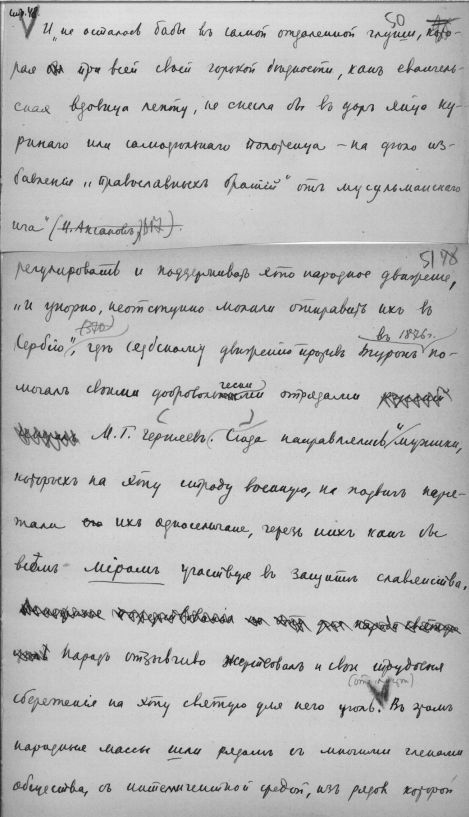 стр. 48
50
И „не осталось бабы въ самой отдаленной глуши, кото-
рая при всей своей горькой бѣдности, какъ евангель-
ская вдовица лепту, не снесла бы въ даръ яйцо ку-
ринаго или самодѣльнаго полотенца – на дѣло из-
бавленія „православныхъ братій“ отъ мусульманскаго
ига“ (И. Аксаковъ, 217).
51 48
регулировать и поддерживать это народное движеніе,
„и упорно, неотступно молили отправить ихъ въ
Сербію“, гдѣ сербскому движенію противъ Турокъ въ 1876г. по-
могалъ своими добровольческими отрядами
М. Г. Черняевъ. Сюда направлялись „мужики,
которыхъ на эту страду военную, на подвигъ наря-
жали ихъ односельчане, черезъ нихъ какъ бы
всѣмъ міромъ участвуя въ защитѣ славянства.
Народъ отзывчиво жертвовалъ и свои трудовыя
сбереженія на эту святую для него цѣль. Въ этомъ
народныя массы шли рядомъ съ многими членами
общества, съ интеллигентной средой, изъ рядов которой